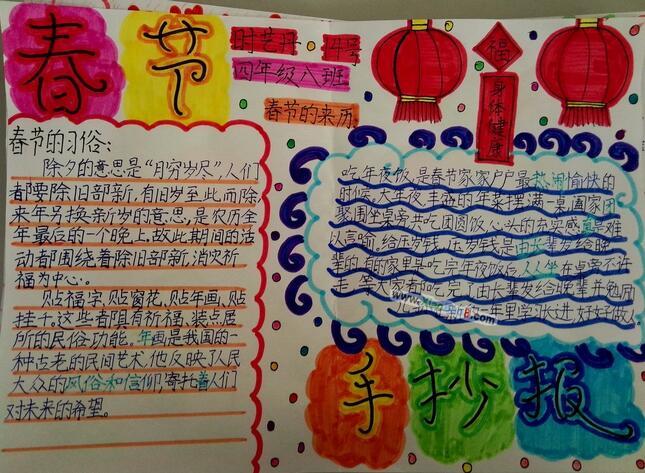 春节
时艺丹 4号
四年级八班
春节的来历
福
身体健康
春节的习俗:
除夕的意思是“月穷岁尽”,人们
都要除旧部新,有旧岁至此而除,
来年另换新岁的意思,是农历全
年最后的一个晚上,故此期间的活
动都围绕着除旧部新,消灾祈
福为中心。
贴福字,贴窗花,贴年画,贴
挂千。这些者阝具有祈福、装点居
所的民俗功能。年画是我国的一
种古老的民间艺术,他反映了人民
大众的风俗和信仰,寄托着人们
对未来的希望。
吃年夜饭,是春节家家户户最热闹愉快的
时候,大年夜,丰盛的年菜摆满一桌,阖家团
聚,围坐桌旁,共吃团圆饭,心头的充实感真是难
以言喻。给压岁钱,压岁钱是由长辈发给晚
辈的,有的家里吃完年夜饭后,人人坐在桌旁不许
走,等大家者阝吃完了由长辈发给晚辈,并勉励
年里学业进,好好做人
手抄报